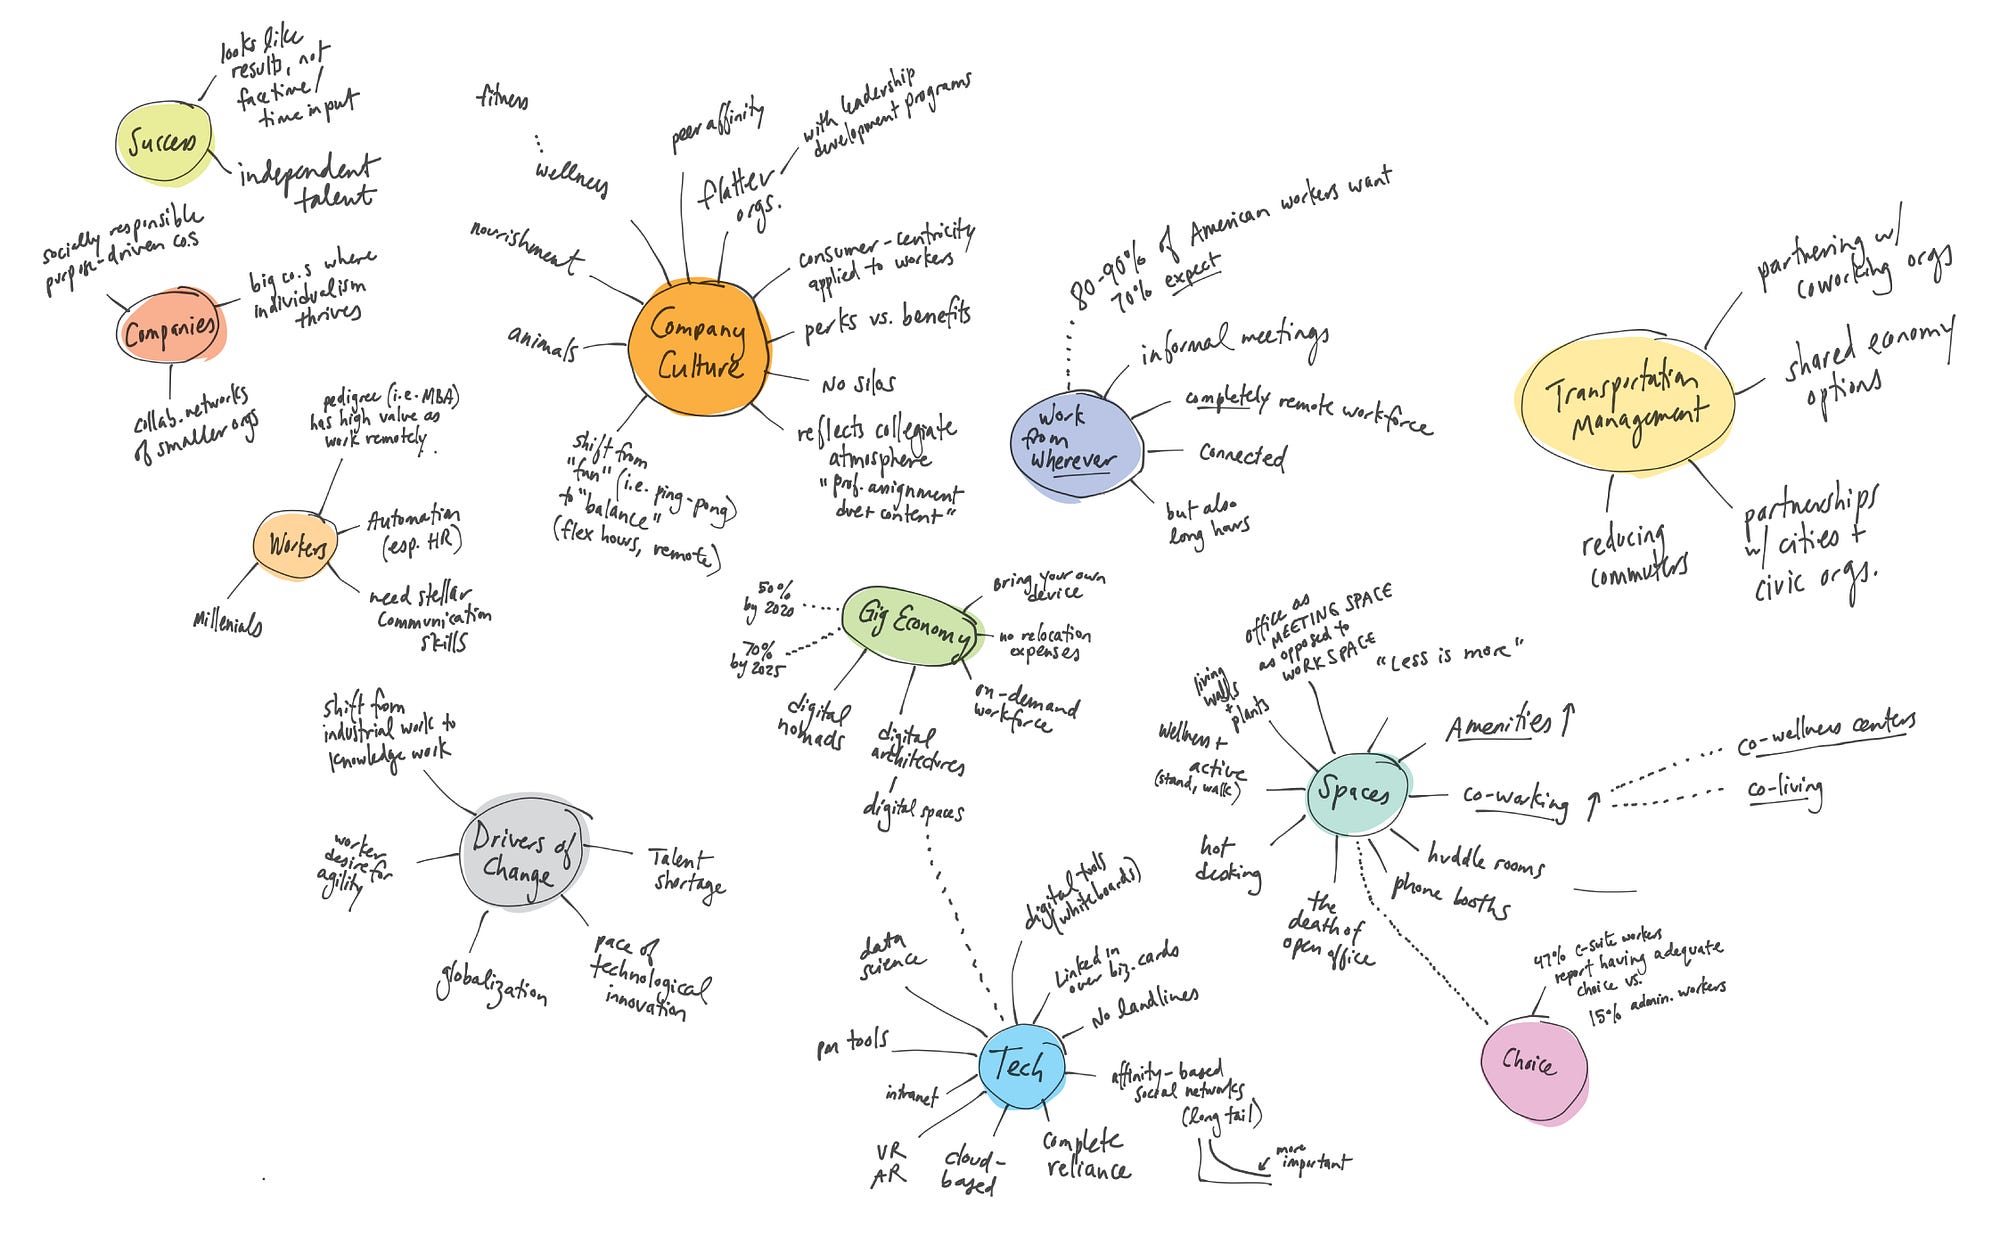 looks like
results, not
facetime/
time input
Success
independent
talent
socially responsible
purpose-driven co.s
big co.s where
individualism
thrives
Companies
collab. networks
of smaller orgs
pedigree (i.e. MBA)
has high value as
work remotely.
Automation
(esp. HR)
Workers
Millenials
need stellar
communication
skills
fitness
wellness
peer affinity
with leadership
development programs
flatter
orgs.
nourishment
consumer-centricity
applied to workers
Company
Culture
perks vs. benefits
animals
No silos
reflects collegiate
atmosphere
"prof. assignment
over content"
shift from
"fun" (i.e. ping-pong)
to "balance"
(flex hours, remote)
80-90% of American workers want
70% expect
informal meetings
completely remote workforce
Work
from
wherever
Connected
but also
long hours
partnering w/
coworking orgs
Transportation
Management
shared economy
options
reducing
commuters
partnerships
w/ cities +
civic orgs.
50%
by 2020
Gig Economy
Bring your own
device
70%
by 2025
no relocation
expenses
digital
nomads
digital
architectures
digital spaces
on-demand
workforce
office as
MEETING SPACE
as opposed to
WORKSPACE
"Less is more"
living
walls
+
plants
Amenities ↑
co-wellness centers
wellness +
active
(stand, walk)
Spaces
co-working ↑
co-living
hot
desking
the
death of
open office
huddle rooms
phone booths
shift from
industrial work to
knowledge work
Drivers of
Change
worker
desire for
agility
Talent
shortage
globalization
pace of
technological
innovation
digital tools
(whiteboards)
data
science
Linked in
over biz. cards
No landlines
pm tools
Tech
affinity-based
social networks
(long tail)
intranet
VR
AR
cloud-
based
complete
reliance
more
important
47% c-suite workers
report having adequate
choice vs.
15% admin. workers
Choice